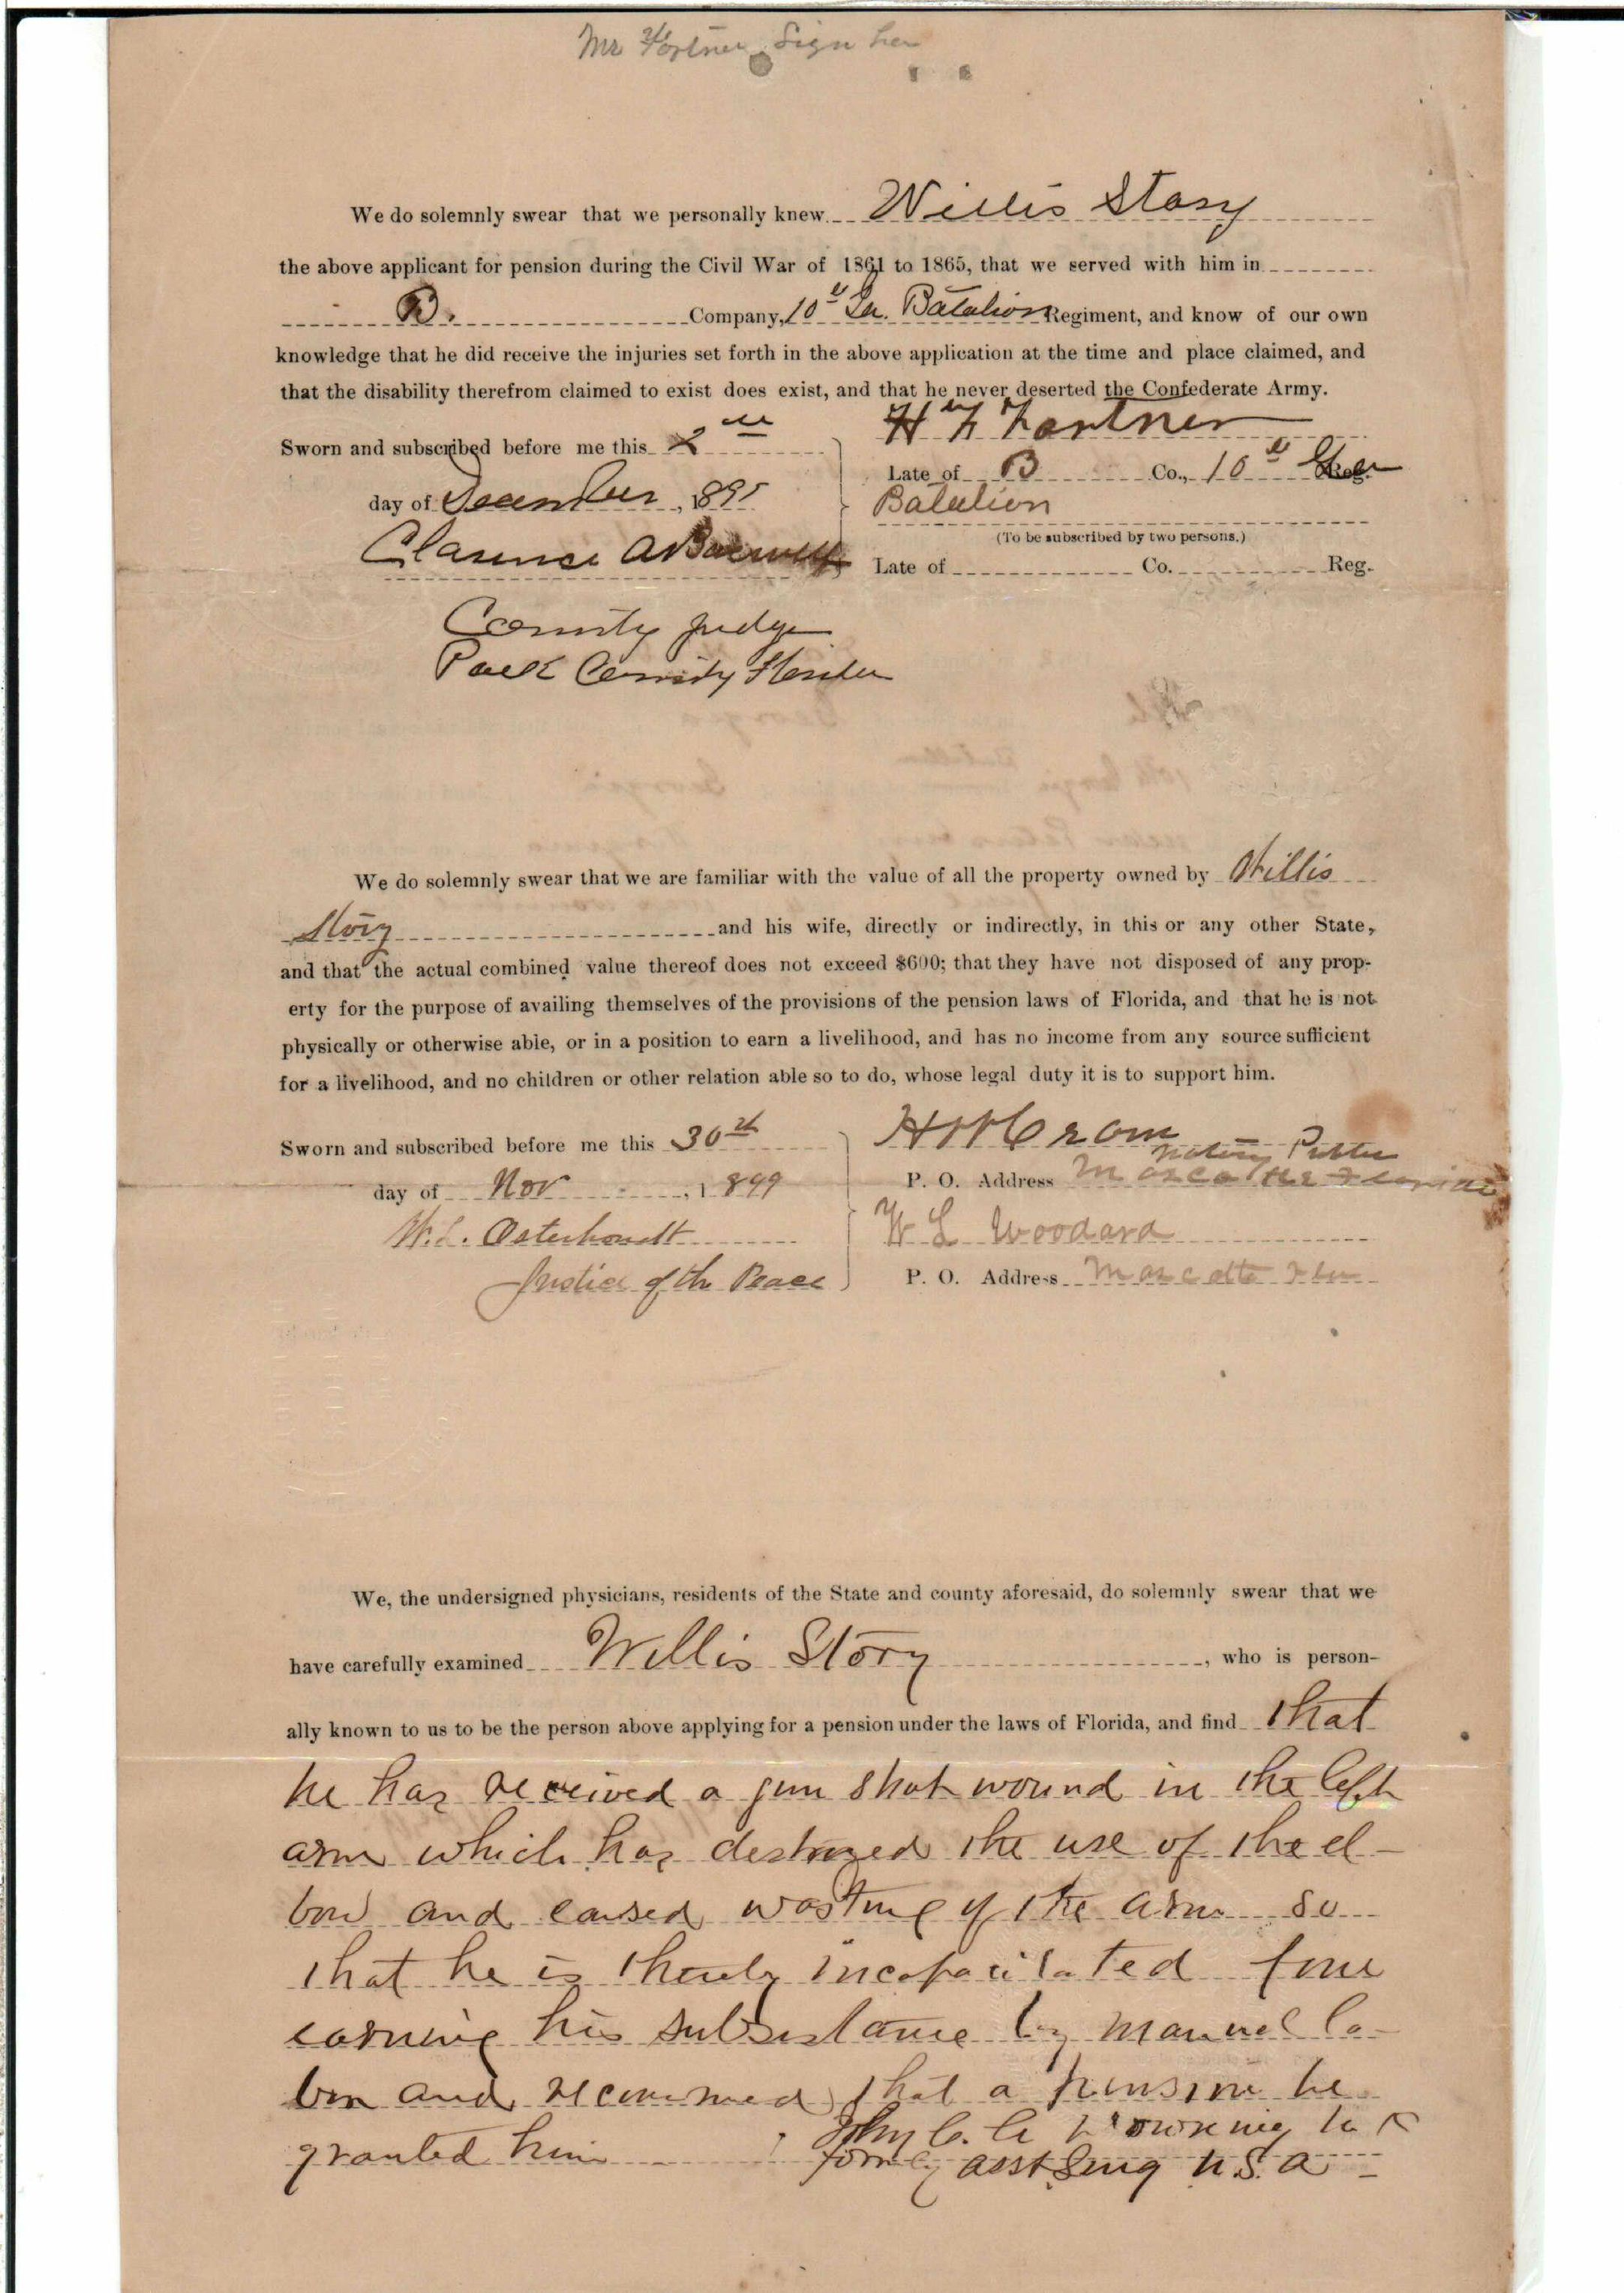 Mr Fortner Sign her
We do solemnly swear that we personally knew Willis Story
the above applicant for pension during the Civil War of 1861 to 1865, that we served with him in
B. Company, 10th Ga. Batalion Regiment, and know of our own
knowledge that he did receive the injuries set forth in the above application at the time and place claimed, and
that the disability therefrom claimed to exist does exist, and that he never deserted the Confederate Army.
H Fortner
Sworn and subscribed before me this 2nd
Late of B Co., 10th Geo Reg.
day of December, 189
Batalion
(To be subscribed by two persons.)
Clarence A
Late of Co. Reg.
County Judge
Polk County Florida
We do solemnly swear that we are familiar with the value of all the property owned by Willis
Story and his wife, directly or indirectly, in this or any other State,
and that the actual combined value thereof does not exceed $600; that they have not disposed of any prop-
erty for the purpose of availing themselves of the provisions of the pension laws of Florida, and that he is not
physically or otherwise able, or in a position to earn a livelihood, and has no income from any source sufficient
for a livelihood, and no children or other relation able so to do, whose legal duty it is to support him.
Sworn and subscribed before me this 30th
Crom
Notary Public
day of Nov, 1899
P. O. Address Mascotte Florida
W. L. Osterhoudt
W L Woodard
Justice of the Peace
P. O. Address Mascotte Fla
We, the undersigned physicians, residents of the State and county aforesaid, do solemnly swear that we
have carefully examined Willis Story, who is person-
ally known to us to be the person above applying for a pension under the laws of Florida, and find that
he has received a gun shot wound in the left
arm which has destroyed the use of the el-
bow and caused wasting of the arm so
that he is thereby incapacitated from
earning his subsistance by manual la-
bor and recommed that a pension be
granted him
John C. C.
formerly asst Surg U.S.A